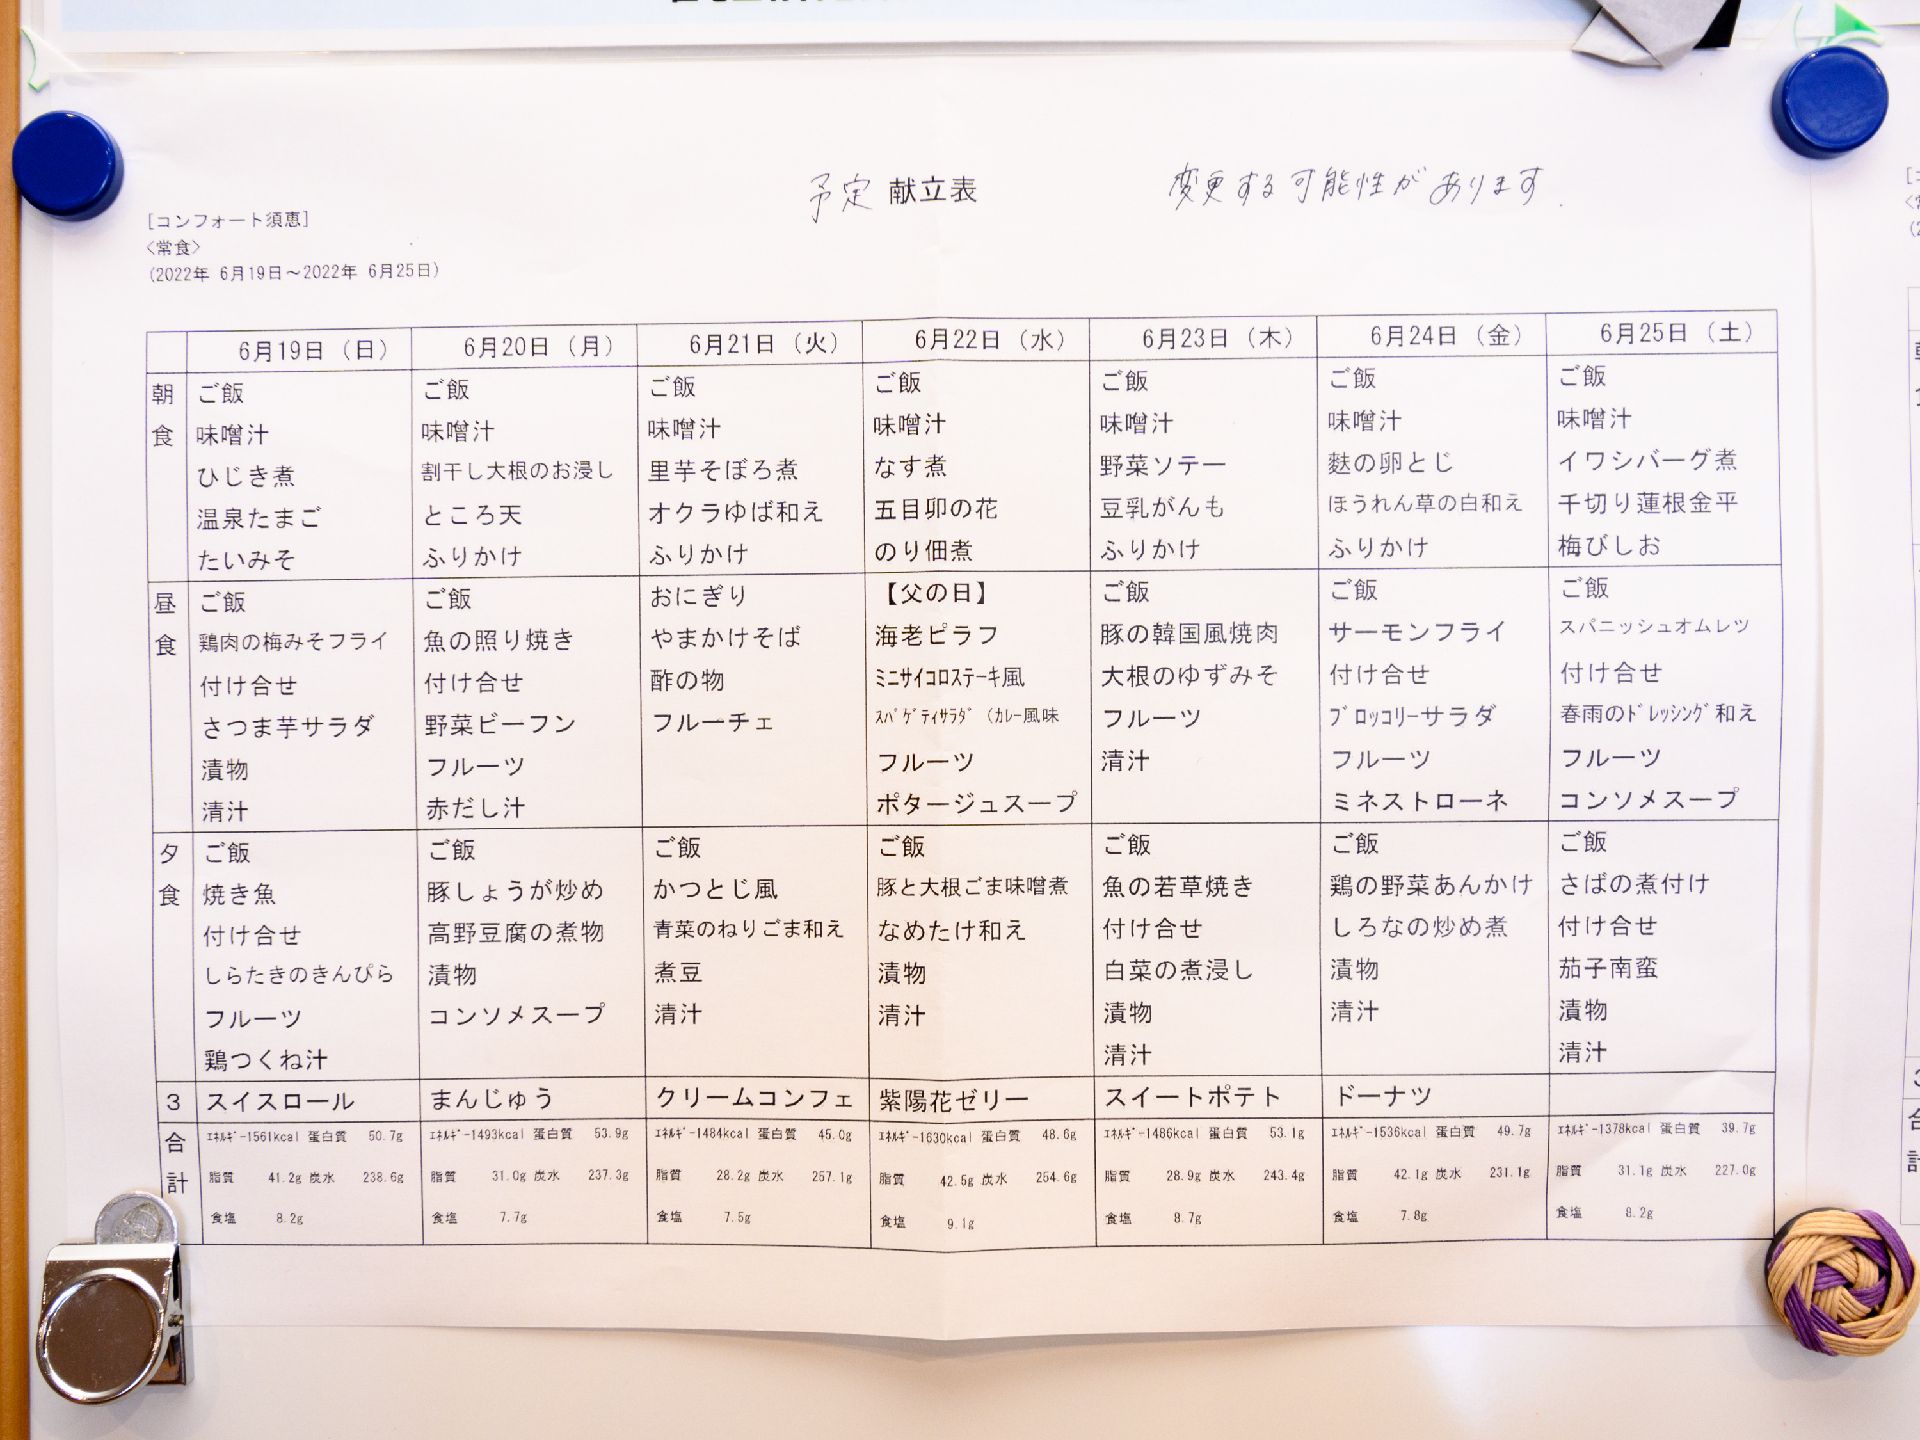 予定 献立表 変更する可能性があります.
[コンフォート須恵]
<常食>
(2022年 6月19日～2022年 6月25日)
6月19日（日） 6月20日（月） 6月21日（火） 6月22日（水） 6月23日（木） 6月24日（金） 6月25日（土）
朝 ご飯 ご飯 ご飯 ご飯 ご飯 ご飯 ご飯
食 味噌汁 味噌汁 味噌汁 味噌汁 味噌汁 味噌汁 味噌汁
ひじき煮 割干し大根のお浸し 里芋そぼろ煮 なす煮 野菜ソテー 麩の卵とじ イワシバーグ煮
温泉たまご ところ天 オクラゆば和え 五目卯の花 豆乳がんも ほうれん草の白和え 千切り蓮根金平
たいみそ ふりかけ ふりかけ のり佃煮 ふりかけ ふりかけ 梅びしお
昼 ご飯 ご飯 おにぎり 【父の日】 ご飯 ご飯 ご飯
食 鶏肉の梅みそフライ 魚の照り焼き やまかけそば 海老ピラフ 豚の韓国風焼肉 サーモンフライ スパニッシュオムレツ
付け合せ 付け合せ 酢の物 ﾐﾆｻｲｺﾛｽﾃｰｷ風 大根のゆずみそ 付け合せ 付け合せ
さつま芋サラダ 野菜ビーフン フルーチェ ｽﾊﾟｹﾞﾃｨｻﾗﾀﾞ（ｶﾚｰ風味 フルーツ ﾌﾞﾛｯｺﾘｰサラダ 春雨のﾄﾞﾚｯｼﾝｸﾞ和え
漬物 フルーツ フルーツ 清汁 フルーツ フルーツ
清汁 赤だし汁 ポタージュスープ ミネストローネ コンソメスープ
夕 ご飯 ご飯 ご飯 ご飯 ご飯 ご飯 ご飯
食 焼き魚 豚しょうが炒め かつとじ風 豚と大根ごま味噌煮 魚の若草焼き 鶏の野菜あんかけ さばの煮付け
付け合せ 高野豆腐の煮物 青菜のねりごま和え なめたけ和え 付け合せ しろなの炒め煮 付け合せ
しらたきのきんぴら 漬物 煮豆 漬物 白菜の煮浸し 漬物 茄子南蛮
フルーツ コンソメスープ 清汁 清汁 漬物 清汁 漬物
鶏つくね汁 清汁 清汁
3 スイスロール まんじゅう クリームコンフェ 紫陽花ゼリー スイートポテト ドーナツ
合 ｴﾈﾙｷﾞｰ1561kcal 蛋白質 50.7g ｴﾈﾙｷﾞｰ1493kcal 蛋白質 53.9g ｴﾈﾙｷﾞｰ1484kcal 蛋白質 45.0g ｴﾈﾙｷﾞｰ1630kcal 蛋白質 48.6g ｴﾈﾙｷﾞｰ1486kcal 蛋白質 53.1g ｴﾈﾙｷﾞｰ1536kcal 蛋白質 49.7g ｴﾈﾙｷﾞｰ1378kcal 蛋白質 39.7g
計 脂質 41.2g 炭水 238.6g 脂質 31.0g 炭水 237.3g 脂質 28.2g 炭水 257.1g 脂質 42.5g 炭水 254.6g 脂質 28.9g 炭水 243.4g 脂質 42.1g 炭水 231.1g 脂質 31.1g 炭水 227.0g
食塩 8.2g 食塩 7.7g 食塩 7.5g 食塩 9.1g 食塩 8.7g 食塩 7.8g 食塩 8.2g